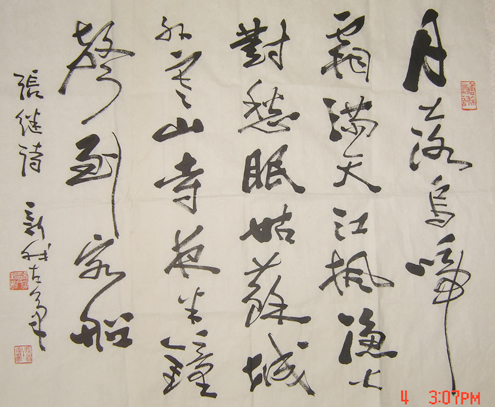 月落烏啼
霜满天江楓漁火
對愁眠姑蘇城
外寒山寺夜半鐘
聲到客船
張继诗
4 3:07PM